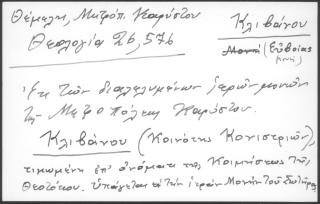 Θέμελη, Μητρόπ. Καρύστου
Θεολογία 26, 576
Κλιβάνου
Μονή (Εὐβοίας
Ἐκ τῶν διαλελυμένων ἱερῶν μονῶν
τῆς Μητροπόλεως Καρύστου.
Κλιβάνου (Κοινότης Κονιστριῶν),
τιμωμένη ἐπ' ὀνόματι τῆς Κοιμήσεως τῆς
Θεοτόκου. Ὑπάγεται εἰς τὴν ἱερὰν Μονὴν τοῦ Σωτῆρος